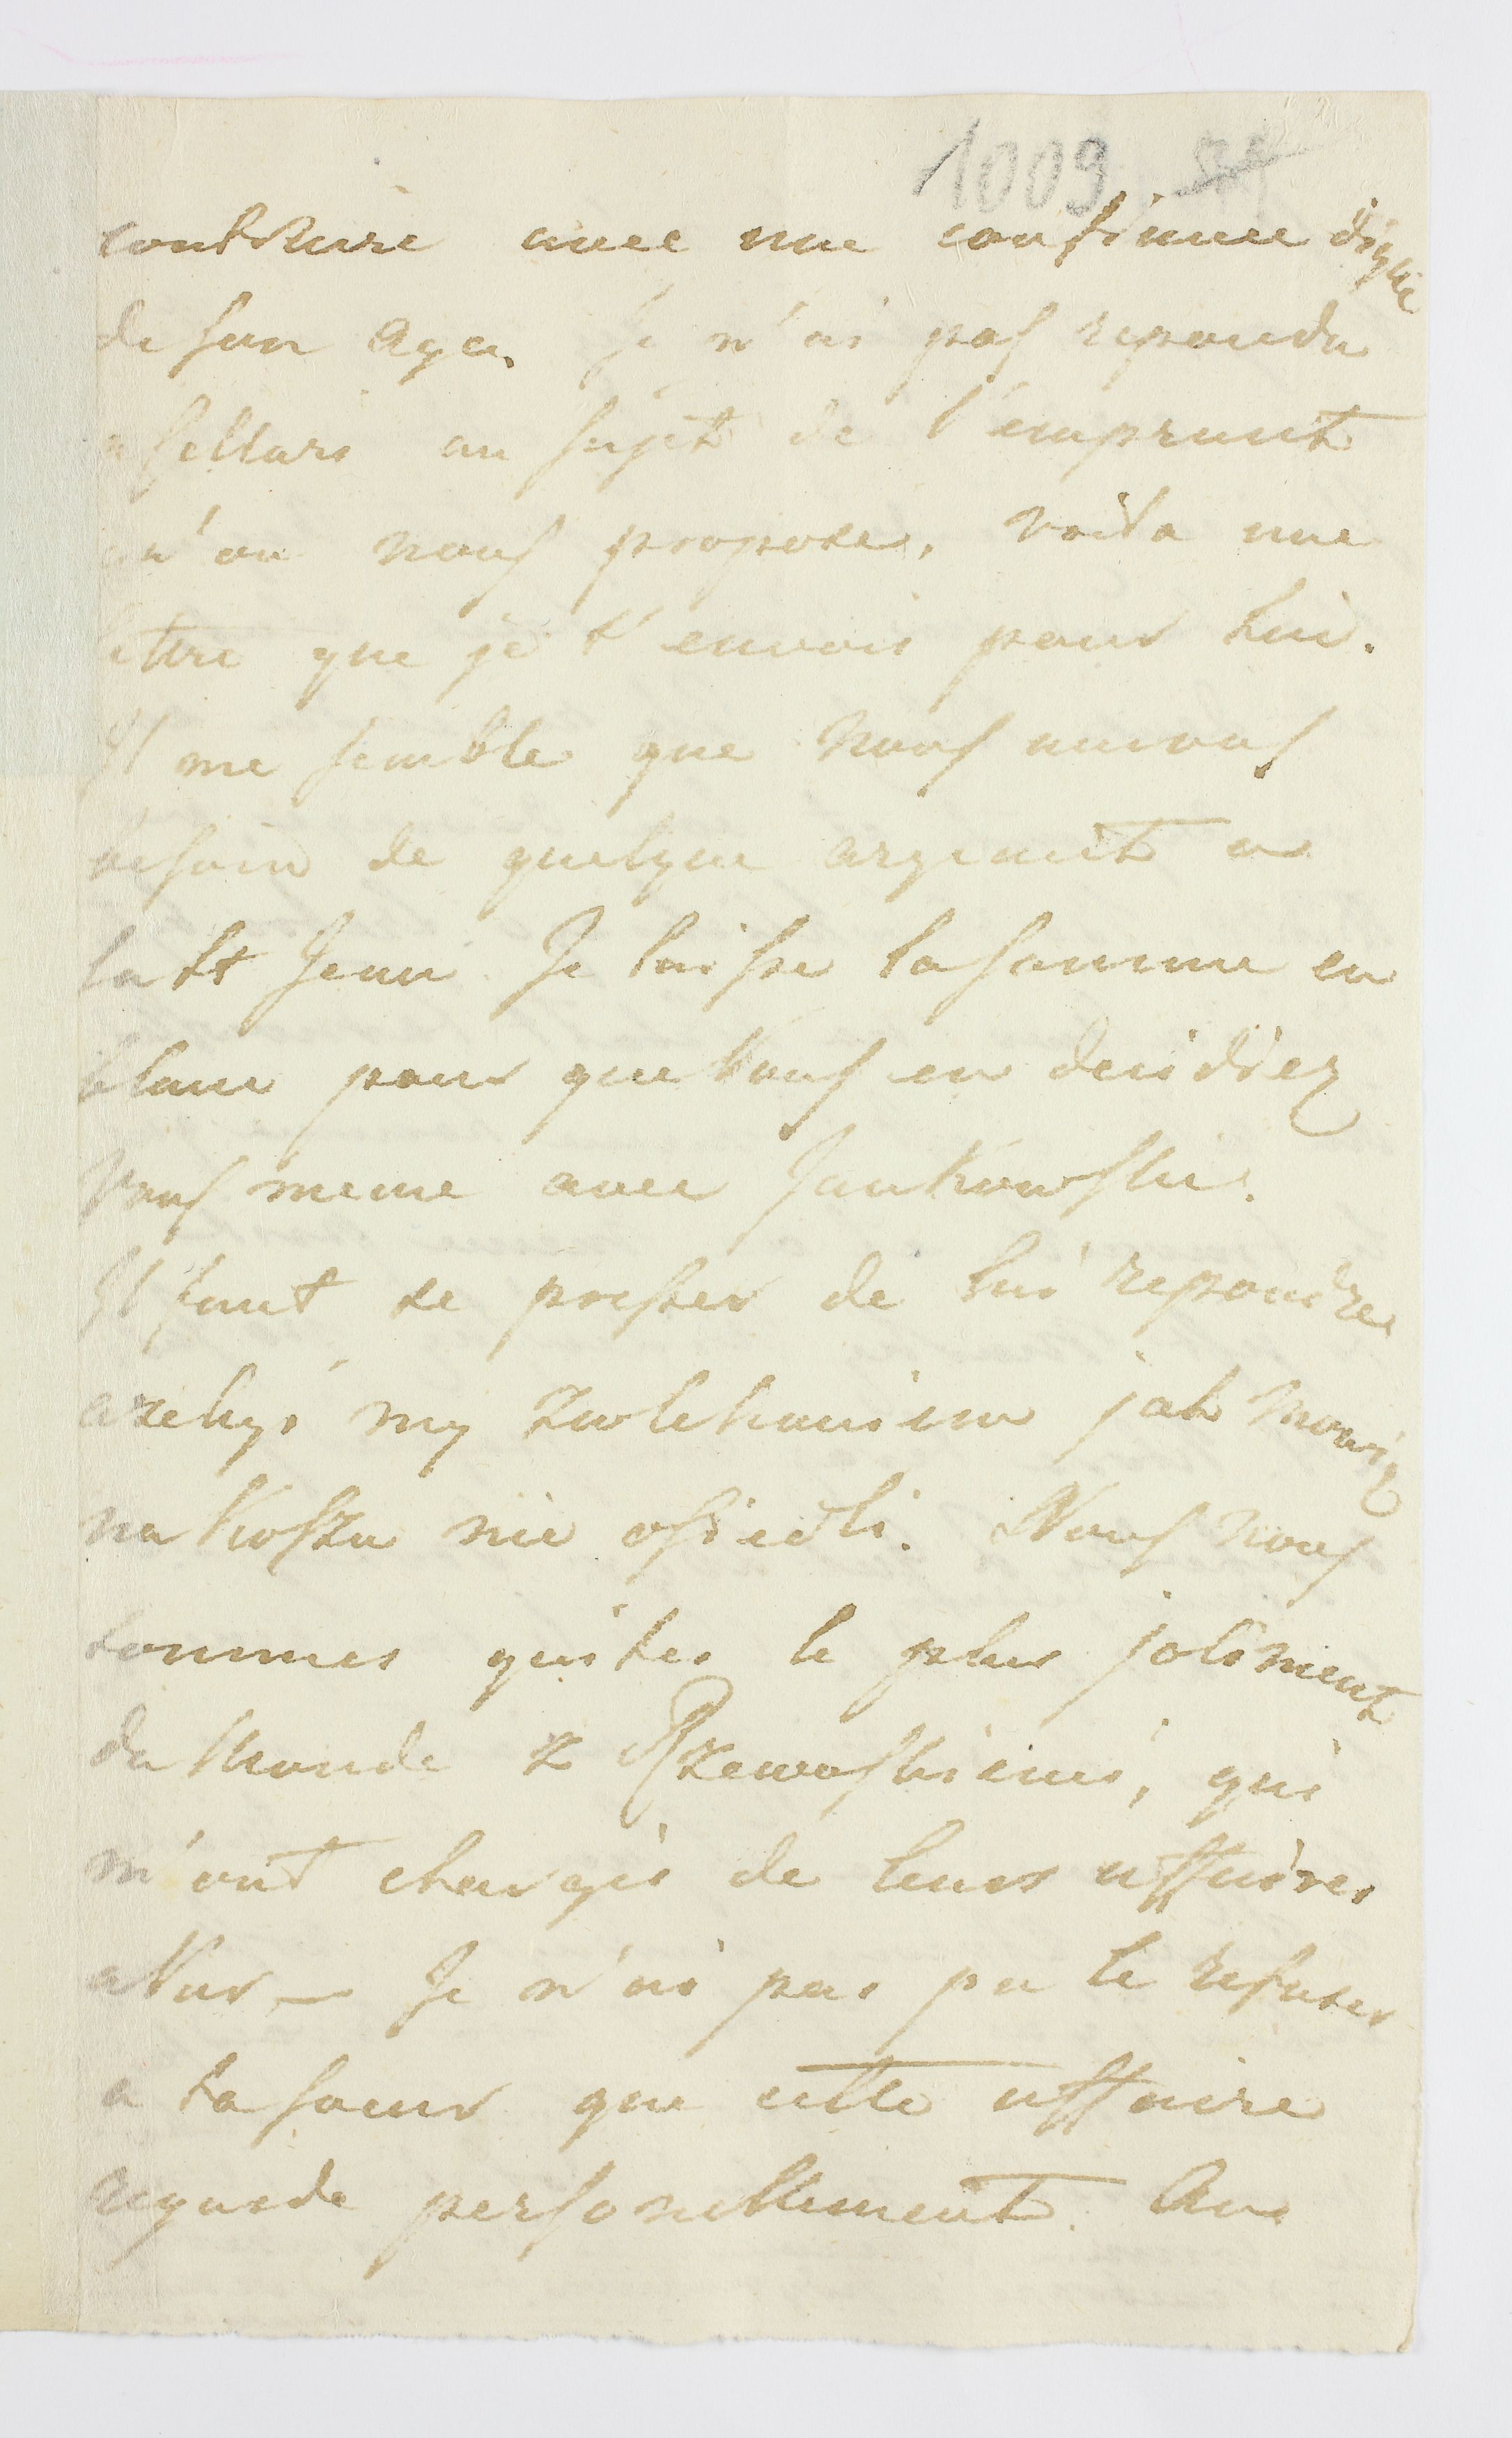 1009
contraire avec une confiance digne
de son age. Je n'ai pas repondu
a sellars au sujet de l'emprunt
qu'on nous propose, voila une
lettre que je t'envois pour lui.
Il me semble que nous aurons
besoin de quelque argent a
la St Jean. Je laisse la somme en
blanc pour que vous en decidiez
vous meme avec Jankowski.
Il faut se presser de lui repondre
azebyś my czekaniem jak mowią
na koszu nie osiedli. Nous nous
sommes quites le plus joliment
du Monde z Rzewuskiemi, qui
m'ont chargé de leurs affaires
a Var – Je n'ai pas pu le refuser
a ta soeur que cette affaire
regarde personellement. Au